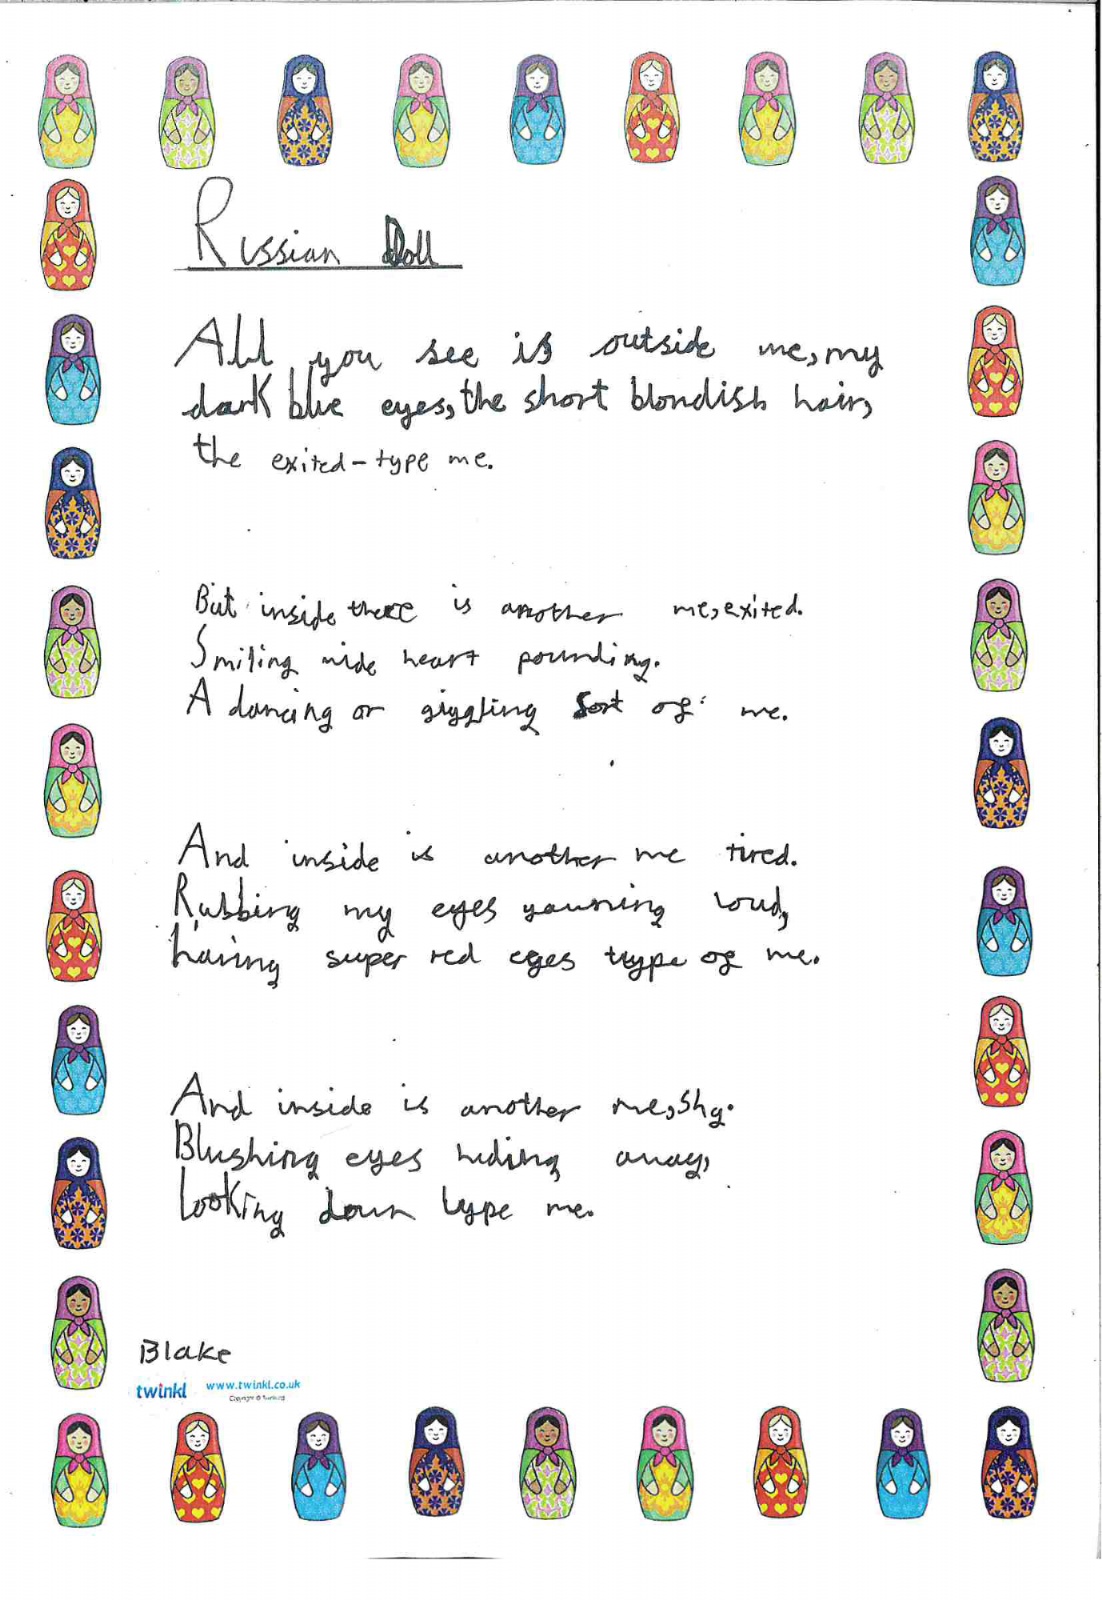 Russian Doll
All you see is outside me, my
dark blue eyes, the short blondish hair,
the exited-type me.
But inside there is another me, exited.
Smiling wide heart pounding.
A dancing or giggling sort of me.
And inside is another me tired.
Rubbing my eyes yawning loud,
having super red eyes type of me.
And inside is another me, shy.
Blushing eyes hiding away,
looking down type me.
Blake
twinkl www.twinkl.co.uk